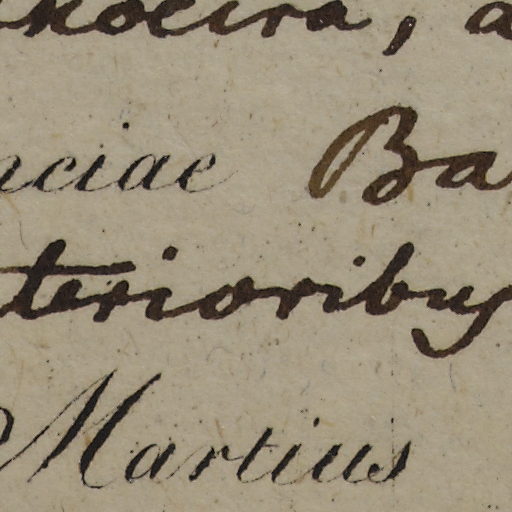 koeira, a
nciae Ba
terioribus
Martius